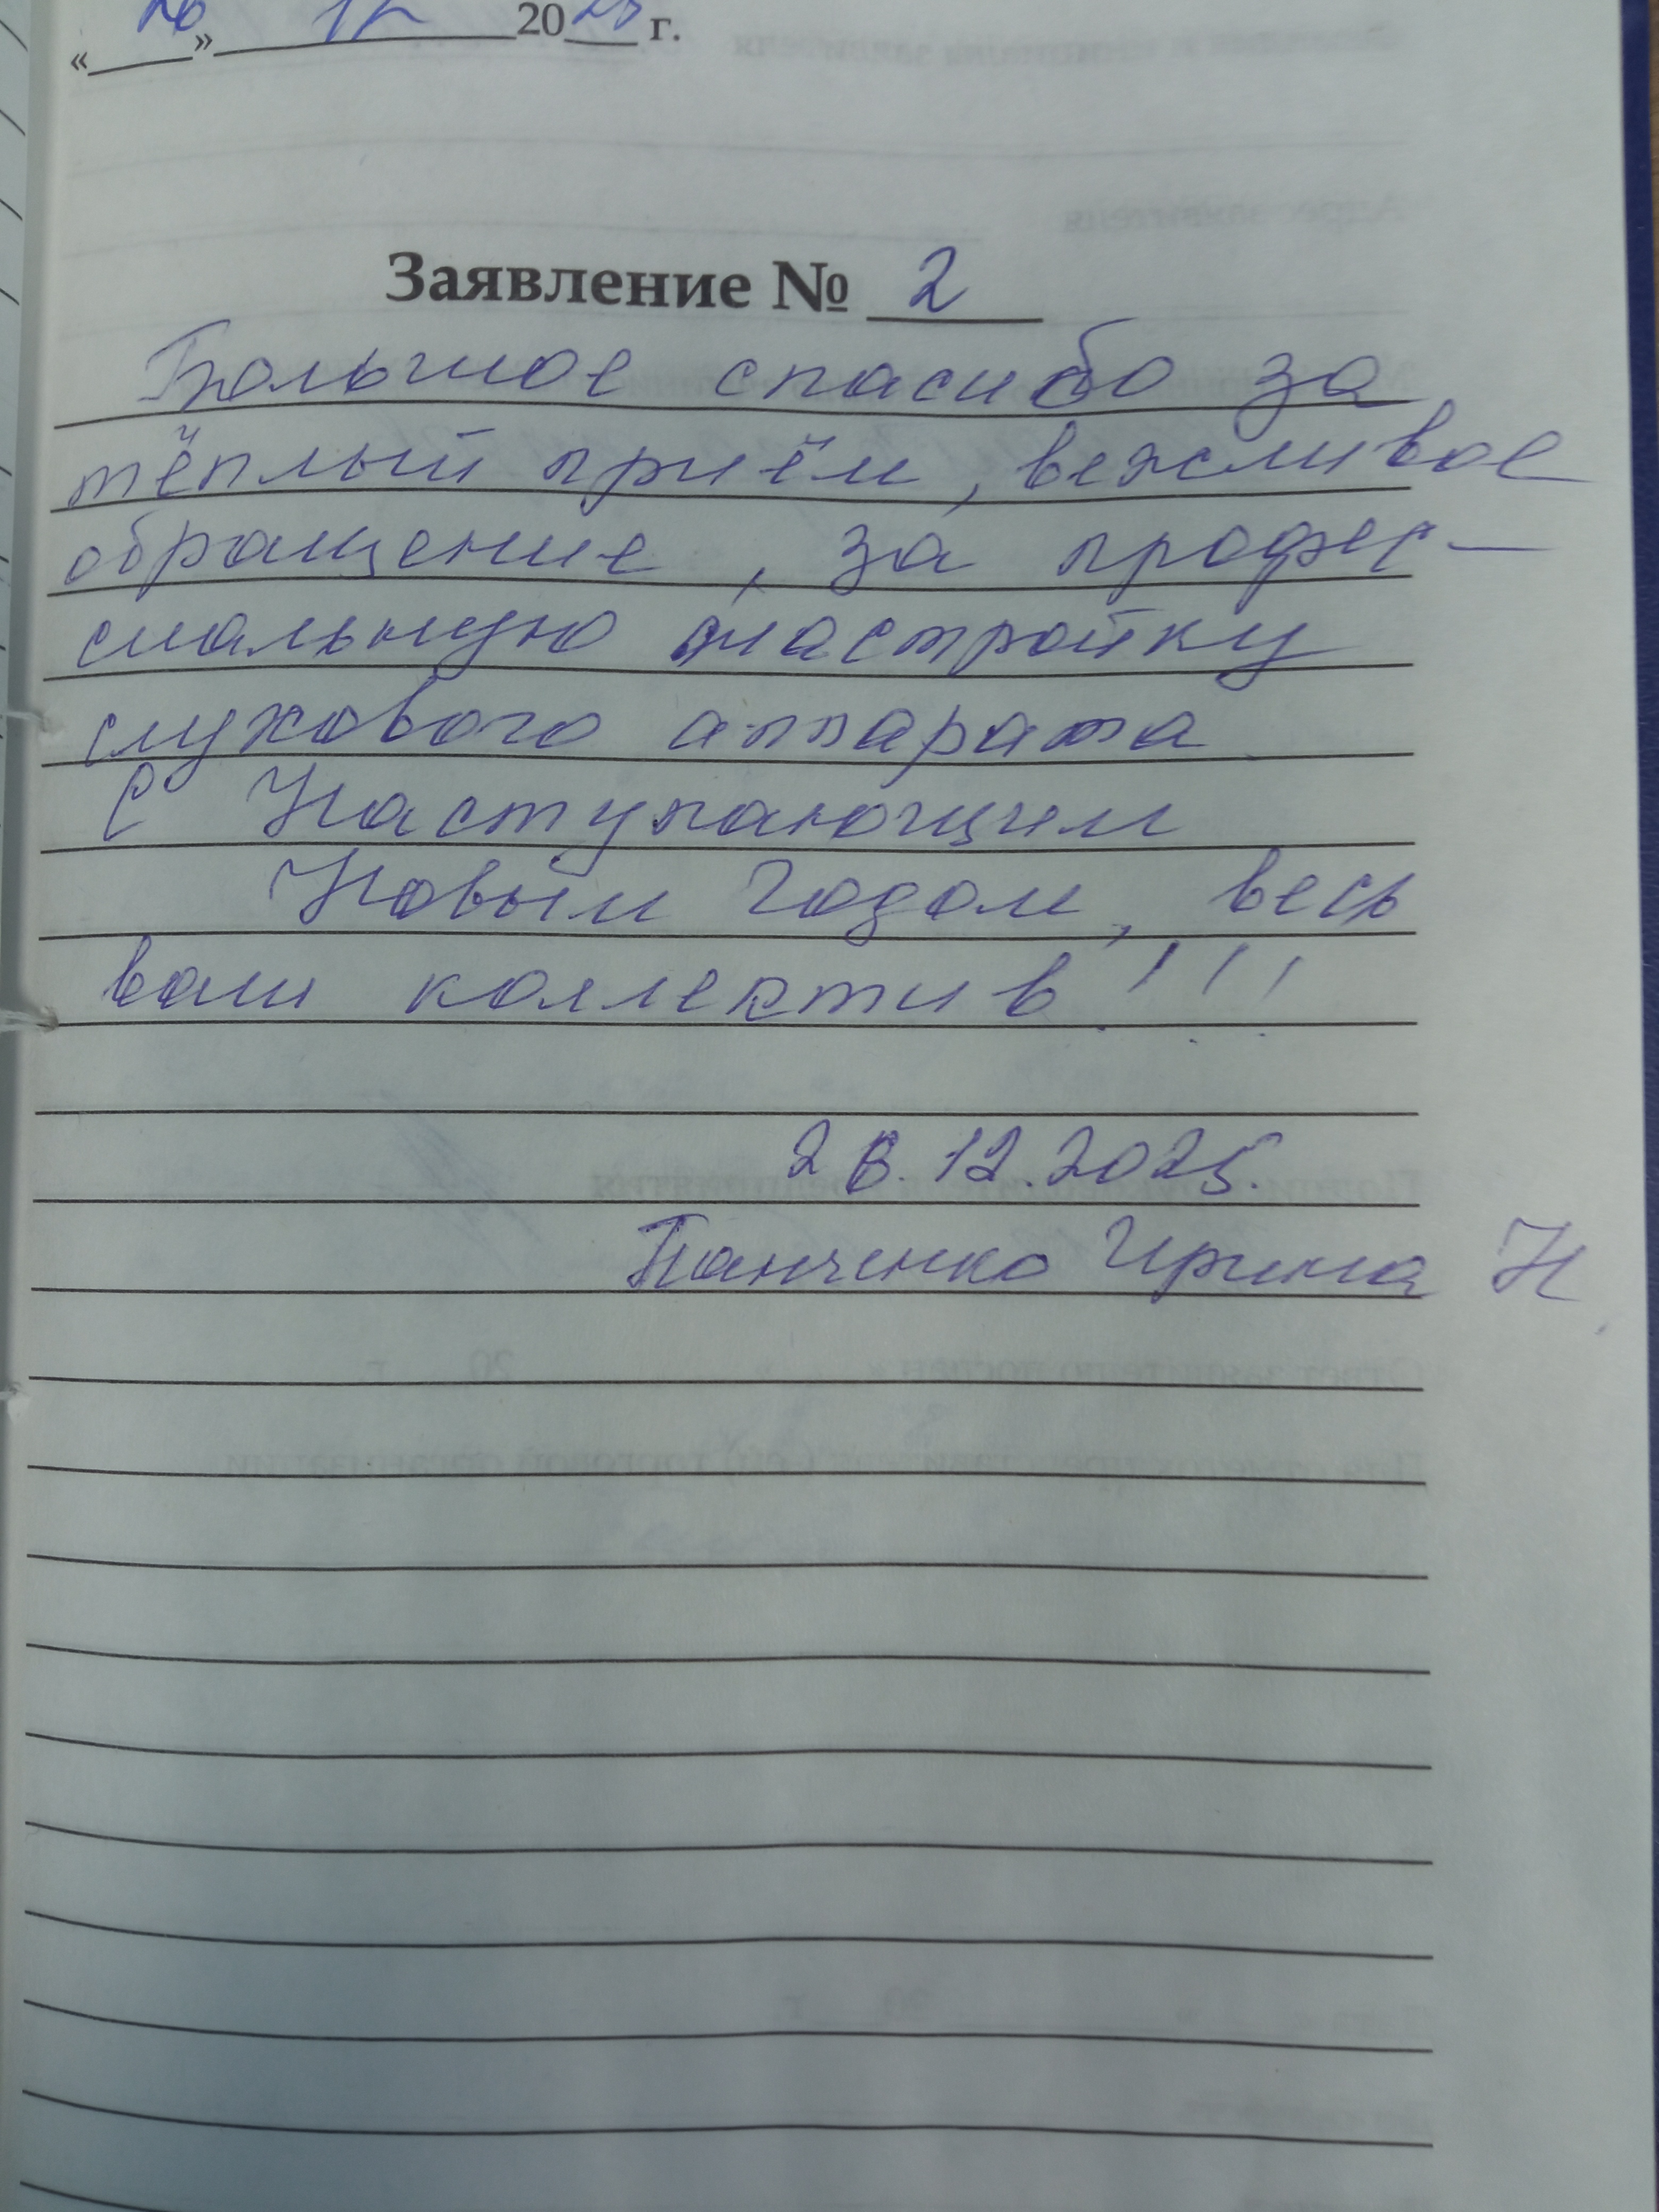 «26» 12 2025 г.
Заявление № 2
Большое спасибо за
тёплый приём, вежливое
обращение, за профес-
сиальную настройку
слухового аппарата
С Наступающим
Новым Годом, весь
ваш коллектив!!!
26.12.2025.
Панченко Ирина Н.